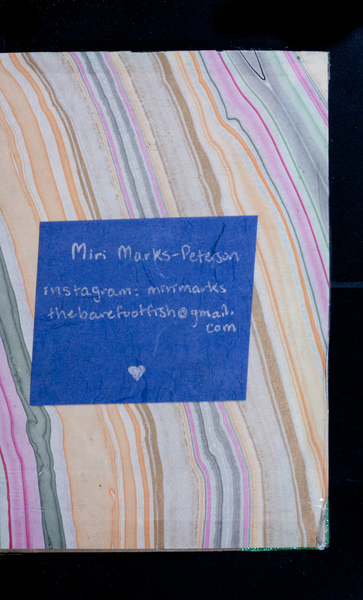 Miri Marks-Peterson
instagram: mirimarks
thebarefootfish@gmail.
com